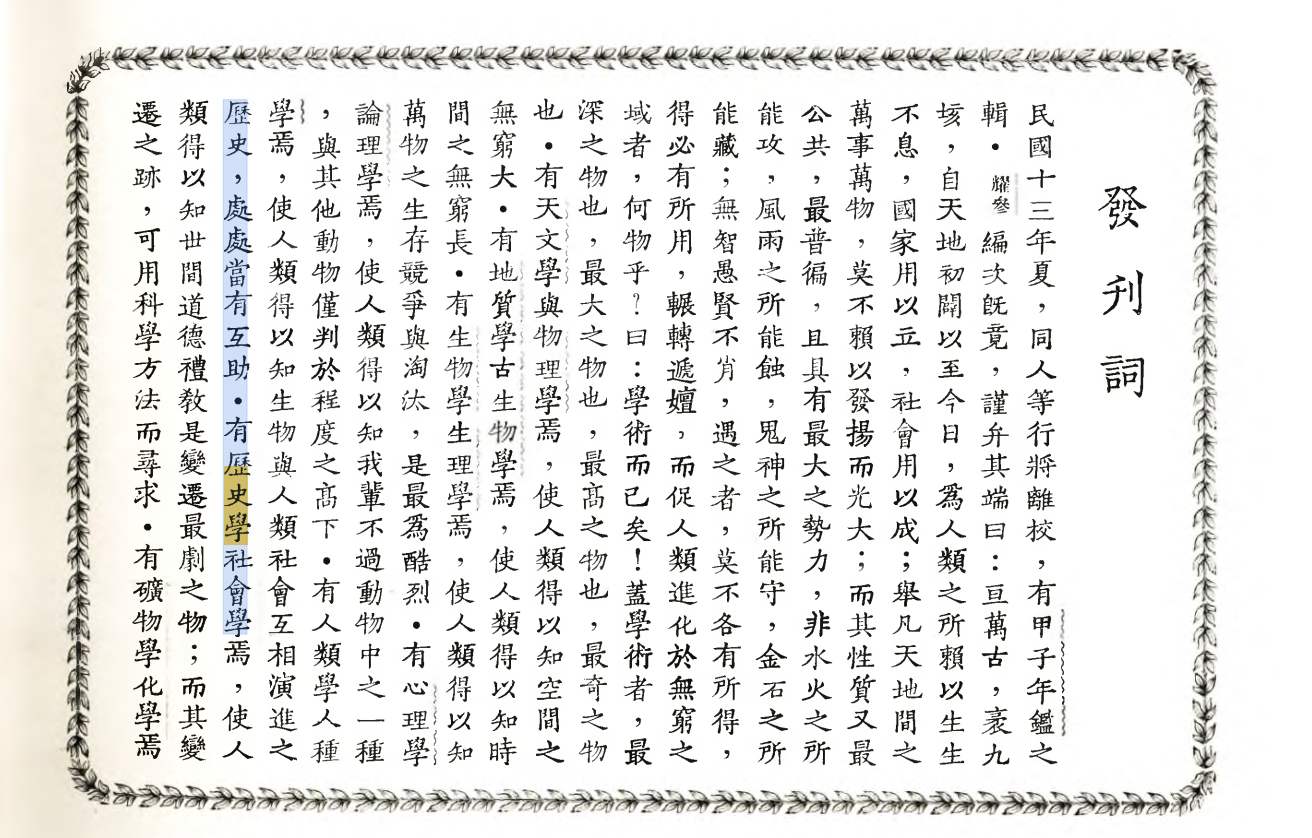 發刊詞
民國十三年夏，同人等行將離校，有甲子年鑑之
輯．耀參編次旣竟，謹弁其端曰：亘萬古，袤九
垓，自天地初闢以至今日，爲人類之所賴以生生
不息，國家用以立，社會用以成；舉凡天地間之
萬事萬物，莫不賴以發揚而光大；而其性質又最
公共，最普徧，且具有最大之勢力，非水火之所
能攻，風雨之所能蝕，鬼神之所能守，金石之所
能藏；無智愚賢不肖，遇之者，莫不各有所得，
得必有所用，輾轉遞嬗，而促人類進化於無窮之
域者，何物乎？曰：學術而已矣！蓋學術者，最
深之物也，最大之物也，最高之物也，最奇之物
也．有天文學與物理學焉，使人類得以知空間之
無窮大．有地質學古生物學焉，使人類得以知時
間之無窮長．有生物學生理學焉，使人類得以知
萬物之生存競爭與淘汰，是最爲酷烈．有心理學
論理學焉，使人類得以知我輩不過動物中之一種
，與其他動物僅判於程度之高下．有人類學人種
學焉，使人類得以知生物與人類社會互相演進之
歷史，處處當有互助．有歷史學社會學焉，使人
類得以知世間道德禮教是變遷最劇之物；而其變
遷之跡，可用科學方法而尋求．有礦物學化學焉